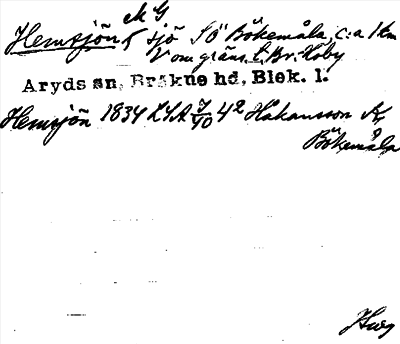 M G
Hemsjön, sjö SÖ Bökemåla, c:a 1 km
V om gräns t. Br.-Hoby
Aryds sn, Bräkne hd, Blek. l.
Hemsjön 1834 LSA 7/10 42 Håkansson K,
Bökemåla